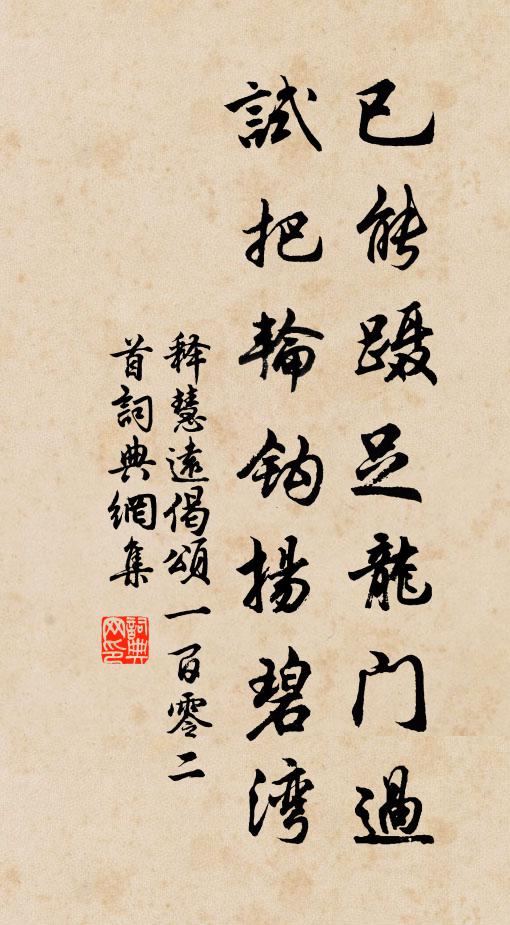 已能蹑足龍门過
試把輪鈎揚碧湾
释慧遠偈頌一百零二
首詞典網集
詞典网印